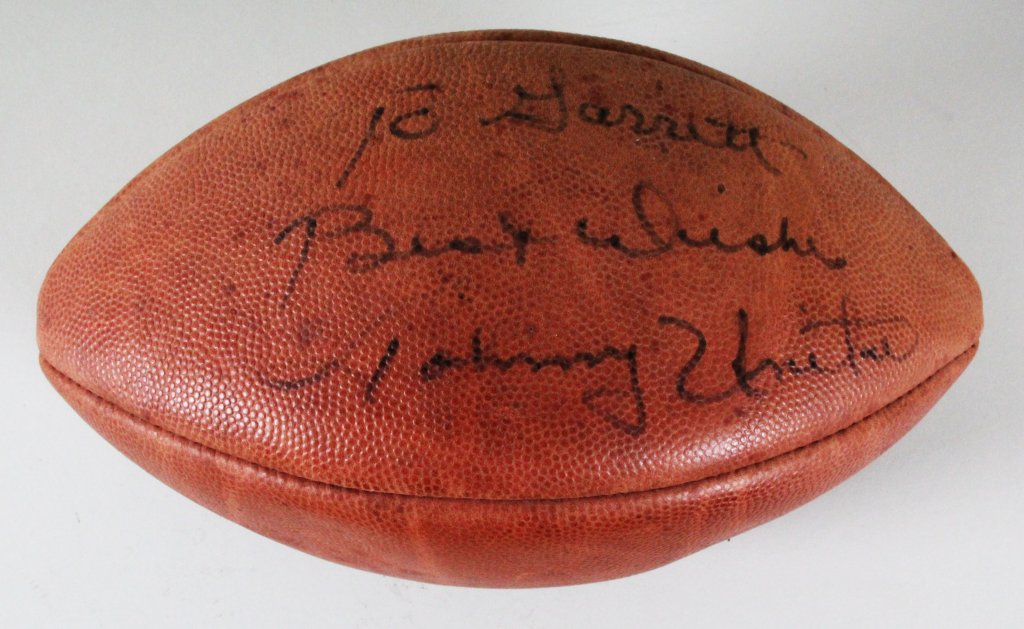 To Garrett
Best Wishes
Johnny Unitas